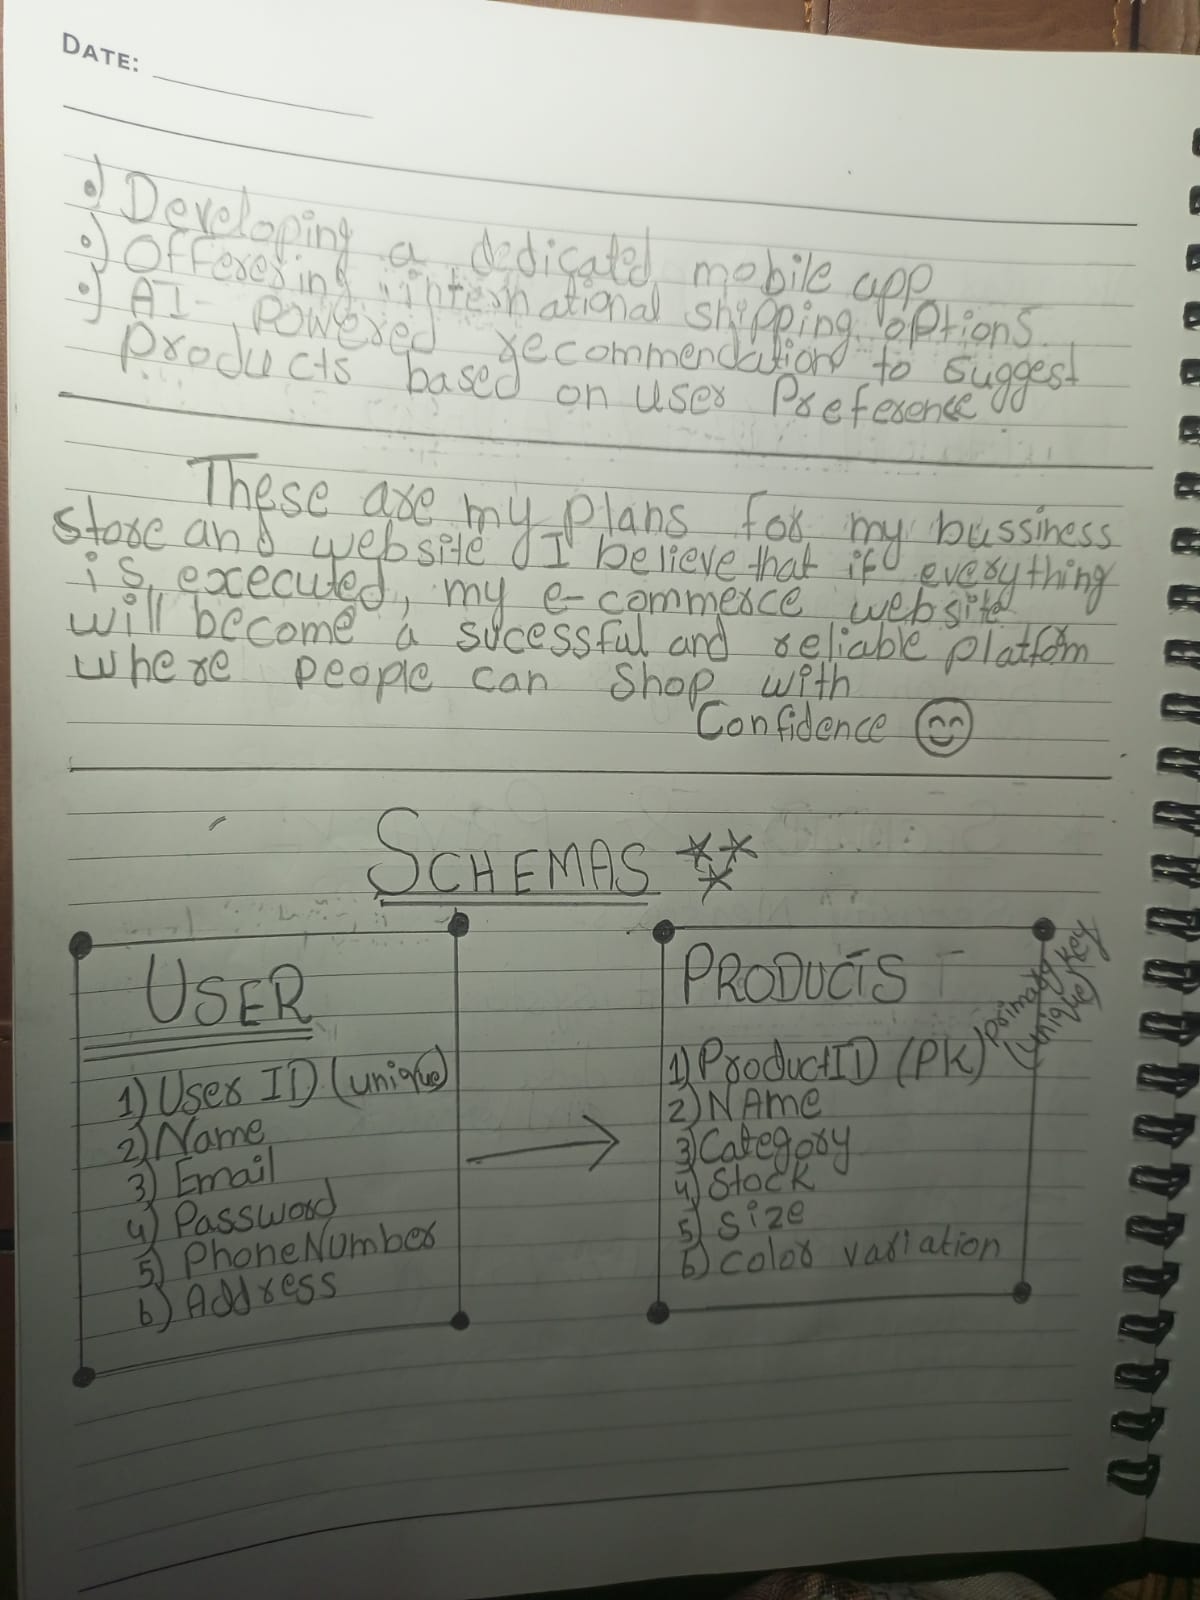 DATE:
•) Developing a dedicated mobile app
•) Offering international shipping options.
•) AI-Powered recommendation to suggest
products based on user Preference
These are my plans for my bussiness
store and website I believe that if everything
is executed, my e-commerce website
will become a sucessful and reliable platform
where people can shop with
Confidence
SCHEMAS
USER
1) User ID (unique)
2) Name
3) Email
4) Password
5) PhoneNumber
6) Address
PRODUCTS
1) ProductID (PK) primary key
(unique)
2) NAme
3) Category
4) Stock
5) size
6) color variation